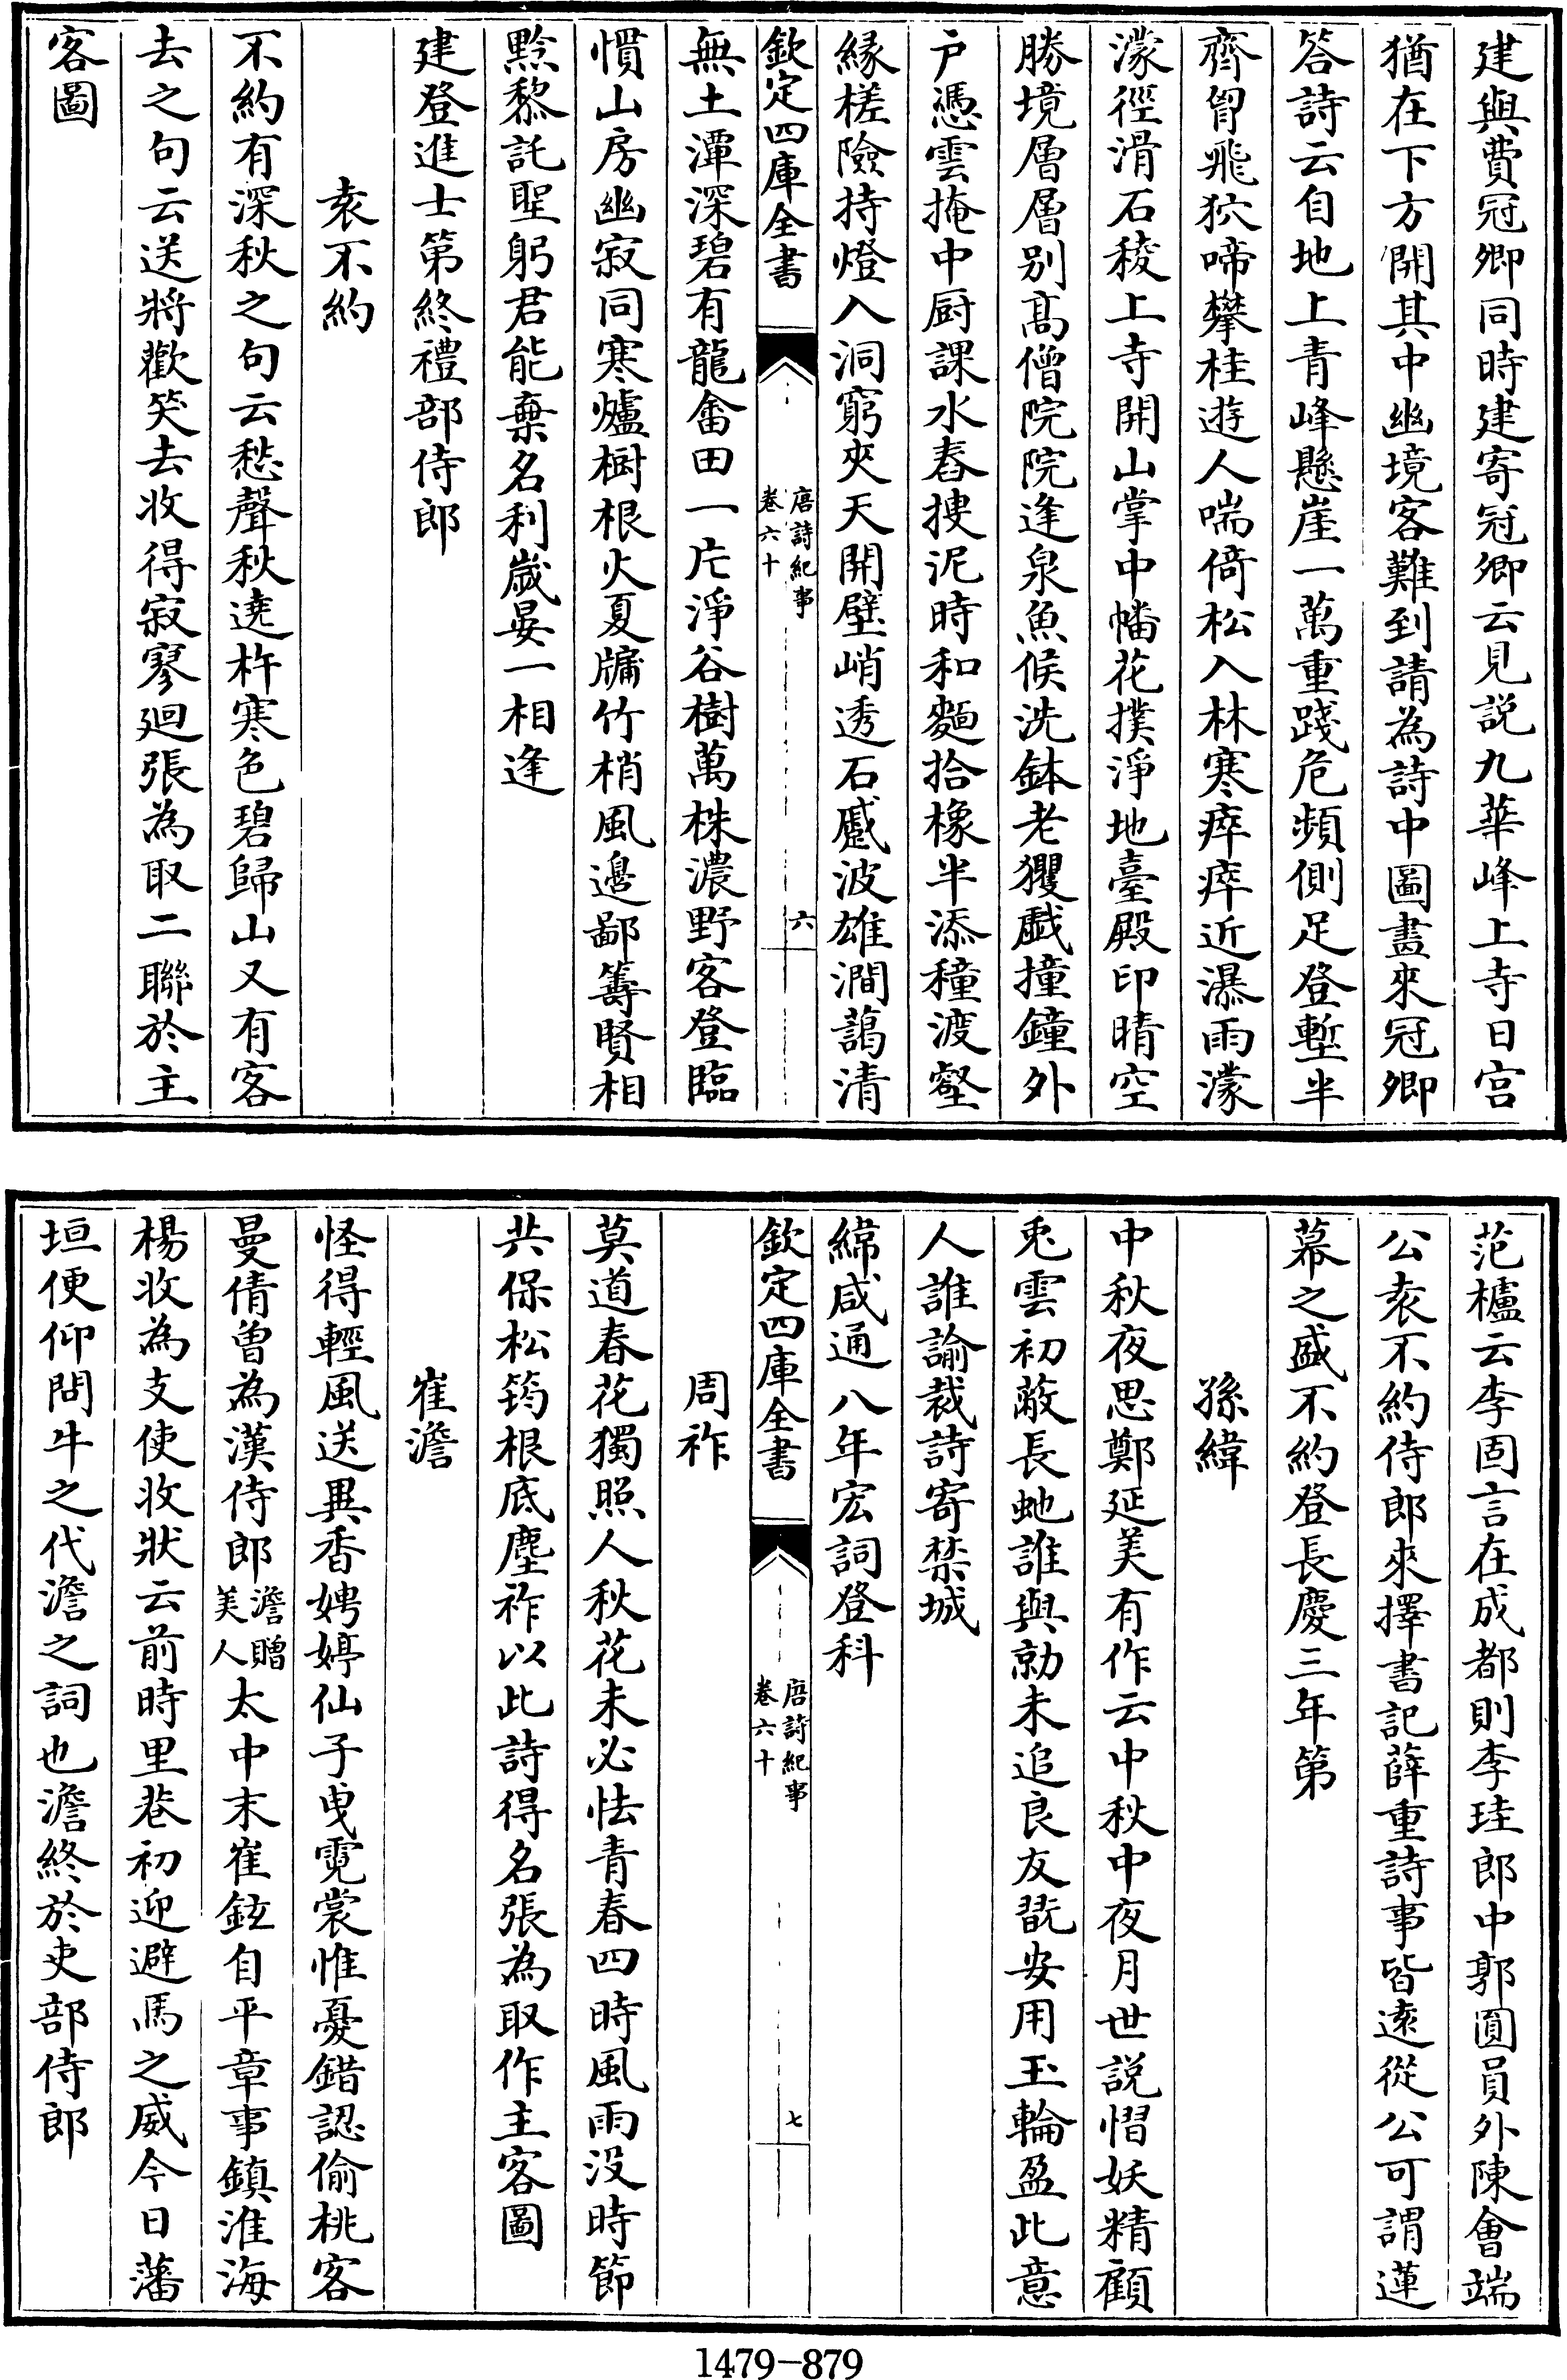 建與費冠卿同時建寄冠卿云見説九華峰上寺日宫
猶在下方開其中幽境客難到請為詩中圖畫來冠卿
答詩云自地上青峰懸崖一萬重踐危頻側足登塹半
齊胷飛狖啼攀桂遊人喘倚松入林寒瘁瘁近瀑雨濛
濛徑滑石稜上寺開山掌中幡花撲淨地臺殿印晴空
勝境層層别髙僧院院逢泉魚候洗鉢老玃戲撞鐘外
户憑雲掩中厨課水舂搜泥時和麵拾橡半添穜渡壑
緣槎險持燈入洞窮夾天開壁峭透石蹙波雄澗藹清
欽定四庫全書
唐詩紀事
卷六十
六
無土潭深碧有龍畬田一片淨谷樹萬株濃野客登臨
慣山房幽寂同寒爐樹根火夏牖竹梢風邉鄙籌賢相
黔黎託聖躬君能棄名利歲晏一相逢
建登進士第終禮部侍郎
袁不約
不約有深秋之句云愁聲秋遶杵寒色碧歸山又有客
去之句云送將歡笑去收得寂寥廻張為取二聯於主
客圖
范櫨云李固言在成都則李珪郎中郭圓員外陳會端
公袁不約侍郎來擇書記薛重詩事皆遠從公可謂蓮
幕之盛不約登長慶三年第
孫緯
中秋夜思鄭延美有作云中秋中夜月世説慴妖精顧
兎雲初蔽長虵誰與勍未追良友翫安用玉輪盈此意
人誰諭裁詩寄禁城
緯咸通八年宏詞登科
欽定四庫全書
唐詩紀事
卷六十
七
周祚
莫道春花獨照人秋花未必怯青春四時風雨没時節
共保松筠根底塵祚以此詩得名張為取作主客圖
崔澹
怪得輕風送異香娉婷仙子曳霓裳惟憂錯認偷桃客
曼倩曾為漢侍郎澹贈美人太中末崔鉉自平章事鎮淮海
楊收為支使收狀云前時里巷初迎避馬之威今日藩
垣便仰問牛之代澹之詞也澹終於吏部侍郎
1479-879